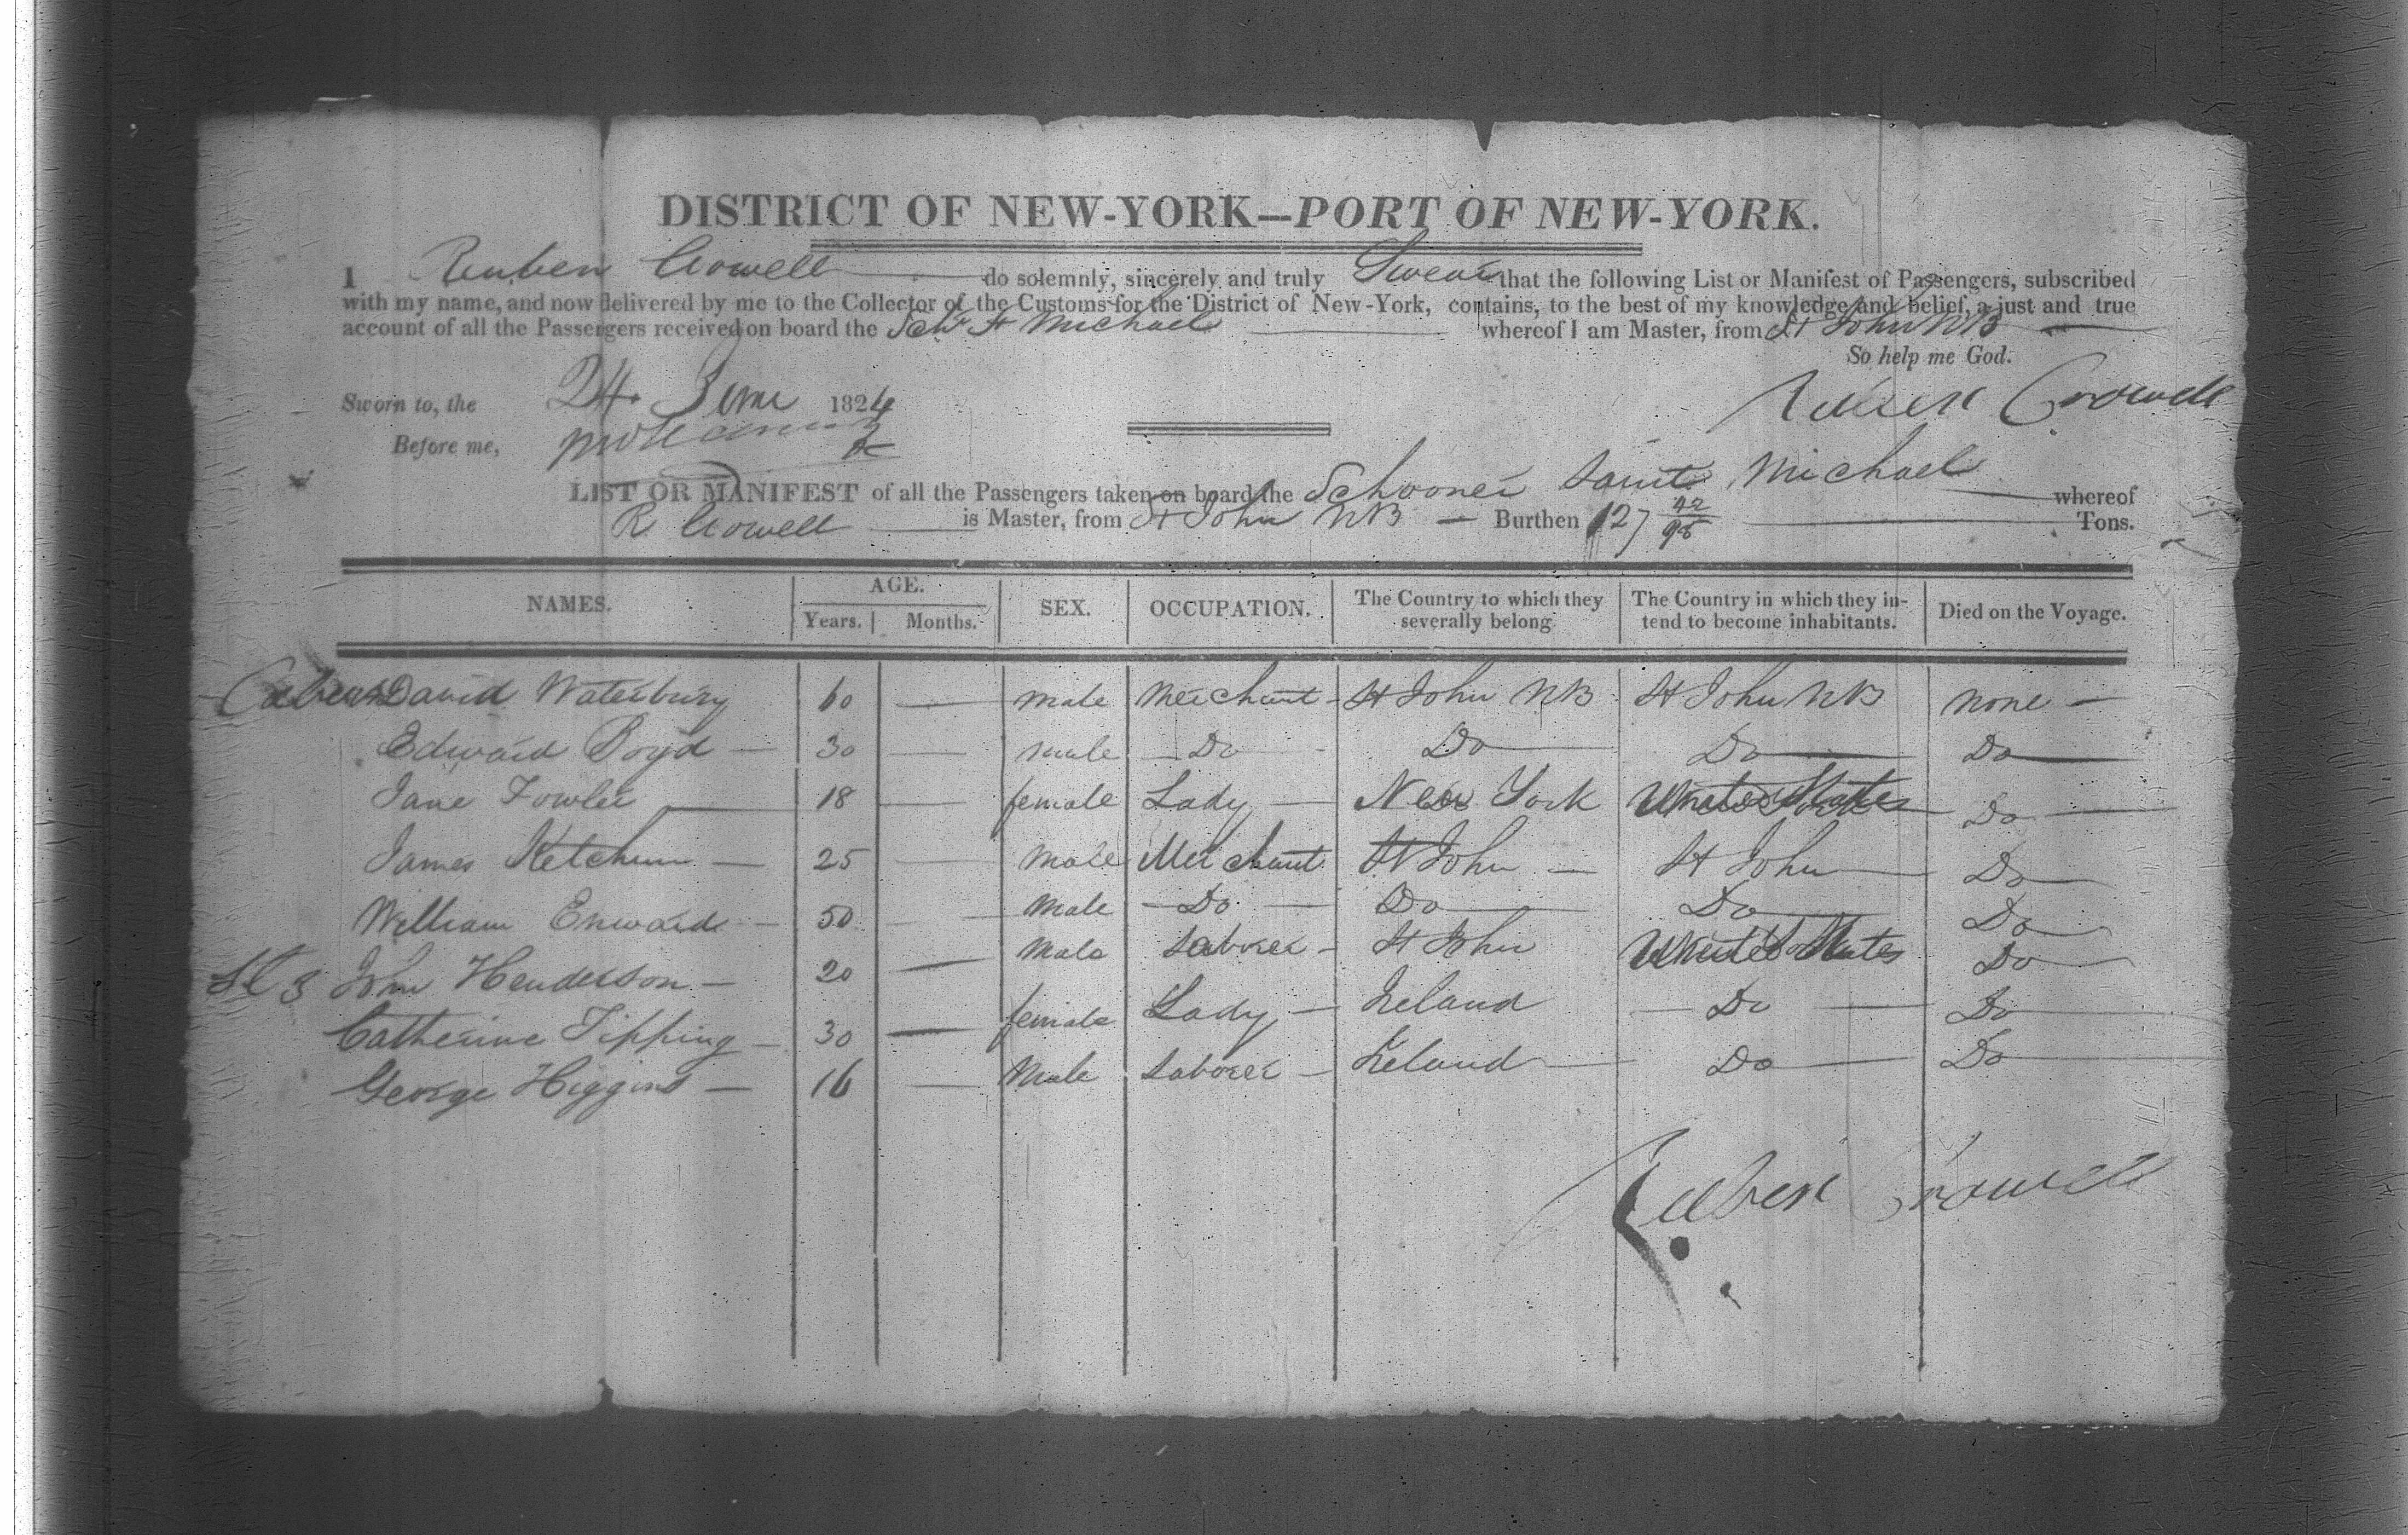 DISTRICT OF NEW-YORK—PORT OF NEW-YORK.
I Reuben Crowell do solemnly, sincerely and truly Swear that the following List or Manifest of Passengers, subscribed
with my name, and now delivered by me to the Collector of the Customs for the District of New-York, contains, to the best of my knowledge and belief, a just and true
account of all the Passengers received on board the Schr St Michael whereof I am Master, from St John NB
So help me God.
Sworn to, the 24. June 1824
Reuben Crowell
Before me,
LIST OR MANIFEST of all the Passengers taken on board the Schooner Saint Michael whereof
R Crowell is Master, from St John NB — Burthen 127 42/95 Tons.
NAMES. AGE. Years. Months. SEX. OCCUPATION. The Country to which they severally belong The Country in which they intend to become inhabitants. Died on the Voyage.
David Waterbury 60 — male Merchant St John NB St John NB none —
Edward Boyd — 30 — male Do Do Do Do
Jane Fowler 18 — female Lady — New York United States Do
James Ketchum — 25 — male Merchant St John — St John Do
William — 50 — male Do Do Do Do
John Henderson — 20 — male Laborer — St John United States Do
Catherine Tipping — 30 — female Lady — Ireland Do Do
George Higgins — 16 — Male Laborer — Ireland Do Do
Reuben Crowell